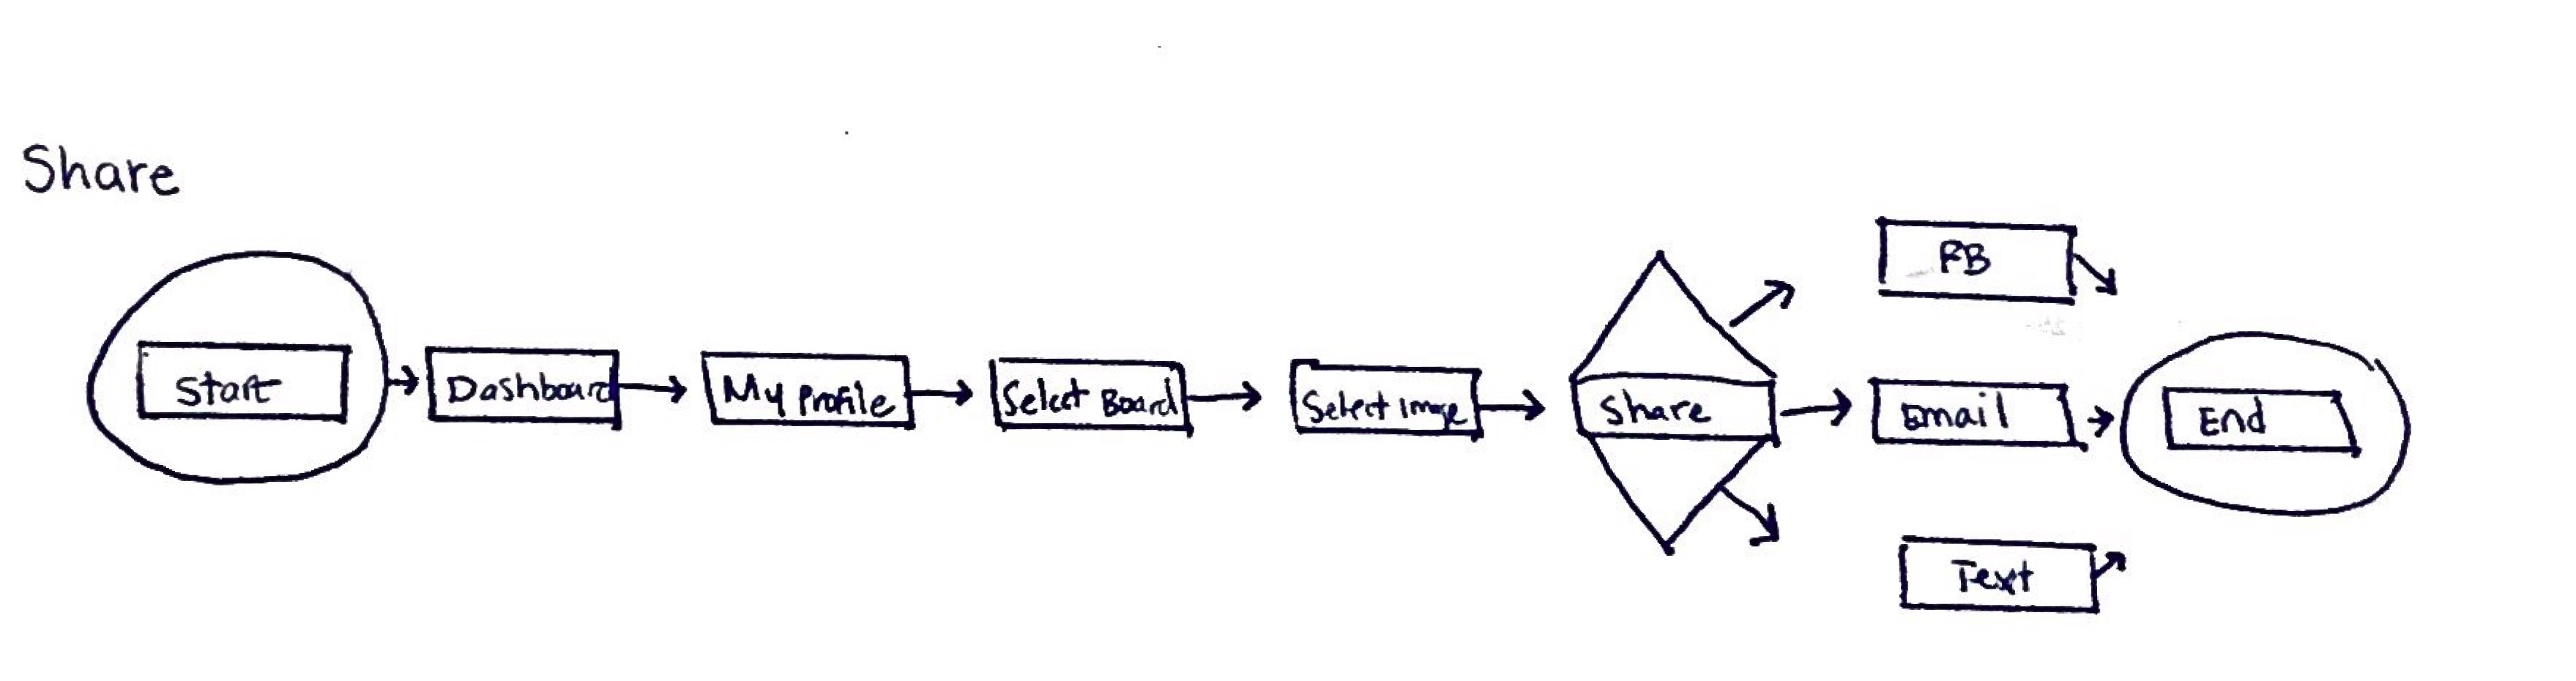 Share
Start
Dashboard
My Profile
Select Board
Select Image
Share
FB
Email
Text
End